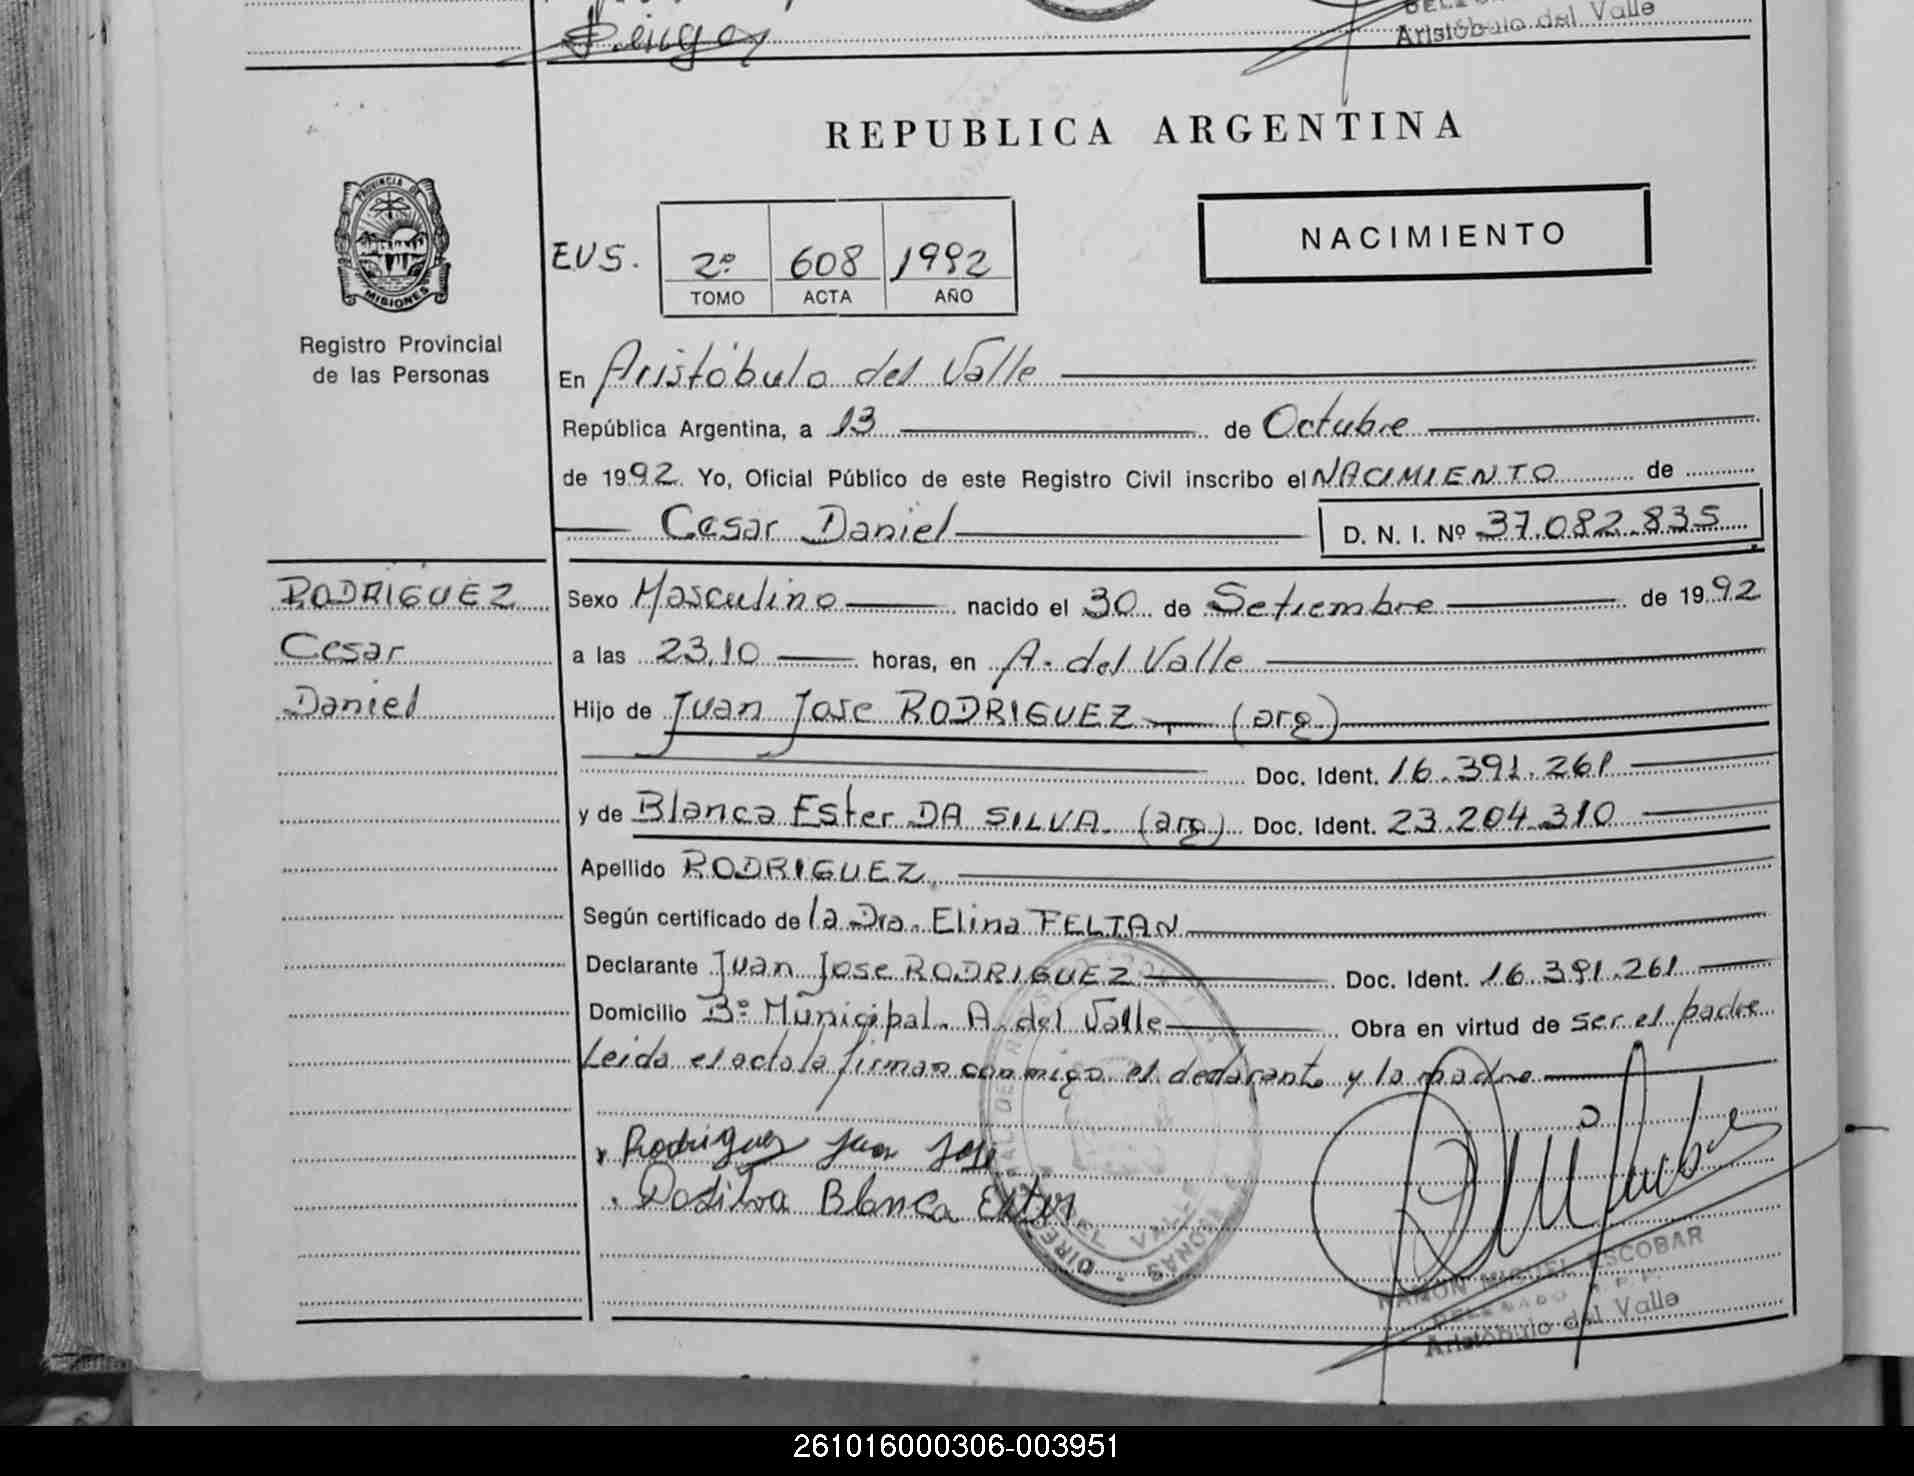 Aristóbulo del Valle
REPUBLICA ARGENTINA
PROVINCIA DE
MISIONES
Registro Provincial
de las Personas
EUS. 2º 608 1992
TOMO ACTA AÑO
NACIMIENTO
En Aristóbulo del Valle
República Argentina, a 13 de Octubre
de 1992. Yo, Oficial Público de este Registro Civil inscribo el NACIMIENTO de
Cesar Daniel D. N. I. Nº 37.082.835
RODRIGUEZ
Cesar
Daniel
Sexo Masculino nacido el 30 de Setiembre de 1992
a las 23,10 horas, en A. del Valle
Hijo de Juan Jose RODRIGUEZ (arg)
Doc. Ident. 16.391.261
y de Blanca Ester DA SILVA. (arg) Doc. Ident. 23.204.310
Apellido RODRIGUEZ
Según certificado de la Dra. Elina FELTAN
Declarante Juan Jose RODRIGUEZ Doc. Ident. 16.391.261
Domicilio Bº Municipal. A. del Valle Obra en virtud de ser el padre
Leida el acta la firman conmigo el declarante y la madre
Rodriguez Juan Jose
Dasilva Blanca Ester
RAMON MIGUEL ESCOBAR
DELEGADO R. P. P.
Aristóbulo del Valle
261016000306-003951